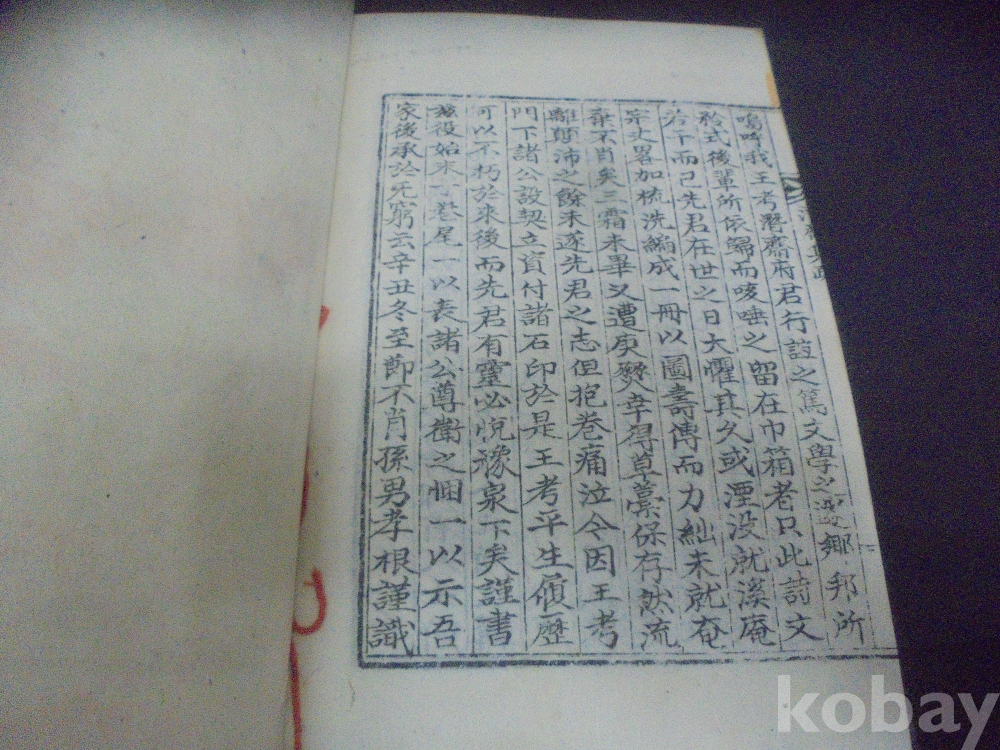 嗚呼我王考潛齋府君行誼之篤文學之邃鄉邦所
矜式後輩所依歸而咳唾之留在巾箱者只此詩文
若干而已先君在世之日大懼其久或湮沒就溪庵
宗丈畧加梳洗編成一冊以圖壽傳而力絀未就奄
棄不肖矣三霜未畢又遭庚燹幸得草藁保存然流
離顛沛之餘未遂先君之志但抱卷痛泣今因王考
門下諸公設契立資付諸石印於是王考平生履歷
可以不朽於來後而先君有靈必悅豫泉下矣謹書
玆役始末于卷尾一以表諸公尊衛之悃一以示吾
家後承於无窮云辛丑冬至節不肖孫男孝根謹識
kobay